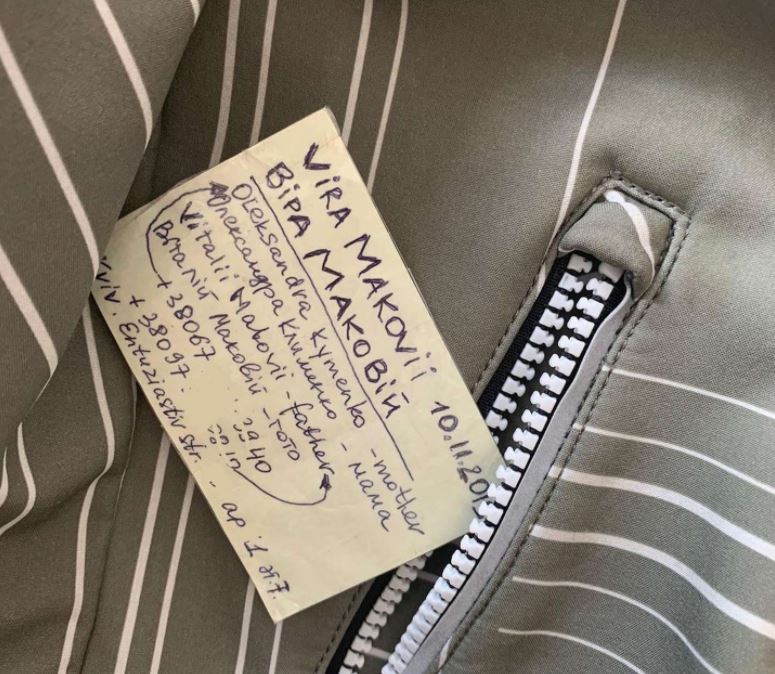 VIRA MAKOVII 10.11.201
ВІРА МАКОВІЙ
Oleksandra Kymenko - mother
Олександра Клименко - мама
Vitalii Makovii - father
Віталій Маковій - тато
+38067 3940
+38097
Entuziastiv str. - ap.